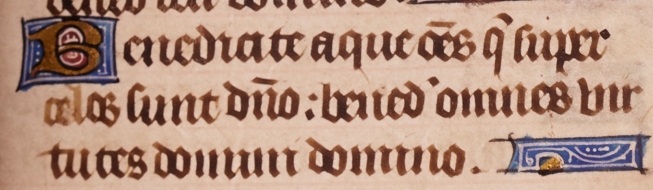 Benedicite aque oēs q̄ super
celos sunt dn̄o: bened' omnes vir
tutes domini domino.